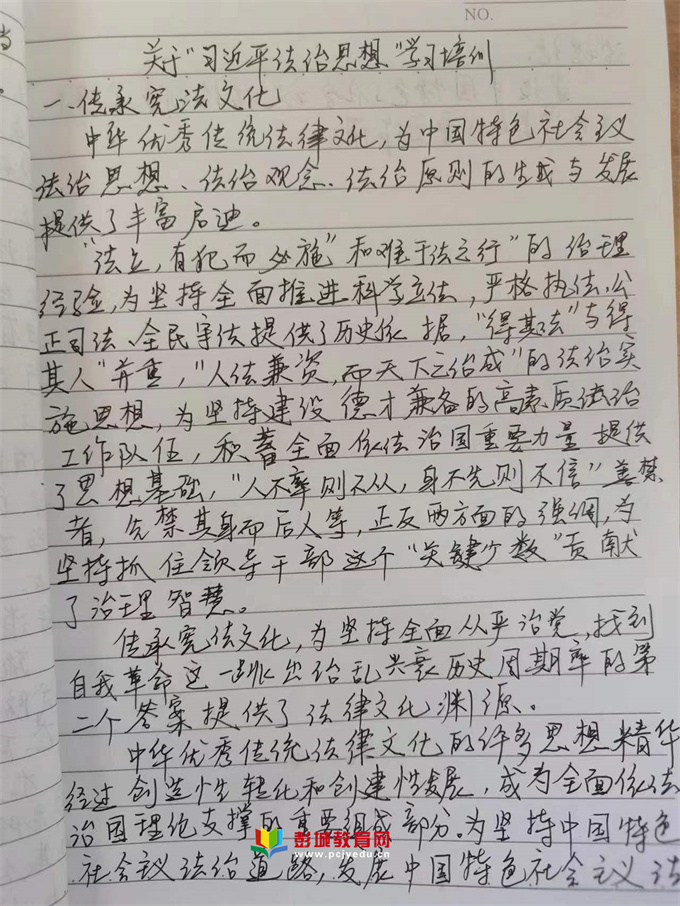 NO.
关于“习近平法治思想”学习培训
一、传承宪法文化
中华优秀传统法律文化,为中国特色社会主义
法治思想、法治观念、法治原则的生成与发展
提供了丰富启迪。
“法立,有犯而必施”和“难于法之行”的治理
经验,为坚持全面推进科学立法,严格执法,公
正司法、全民守法提供了历史依据,“得其法”与得
其人”并重,“人法兼资,而天下之治成”的法治实
施思想,为坚持建设德才兼备的高素质法治
工作队伍,积蓄全面依法治国重要力量提供
了思想基础,“人不率则不从,身不先则不信”善禁
者,先禁其身而后人等,正反两方面的强调,为
坚持抓住领导干部这个“关键少数”贡献
了治理智慧。
传承宪法文化,为坚持全面从严治党,找到
自我革命这一跳出治乱兴衰历史周期率的第
二个答案提供了法律文化渊源。
中华优秀传统法律文化的许多思想精华
经过创造性转化和创建性发展,成为全面依法
治国理论支撑的重要组成部分。为坚持中国特色
社会主义法治道路,发展中国特色社会主义法
彭城教育网
www.pcjyedu.cn